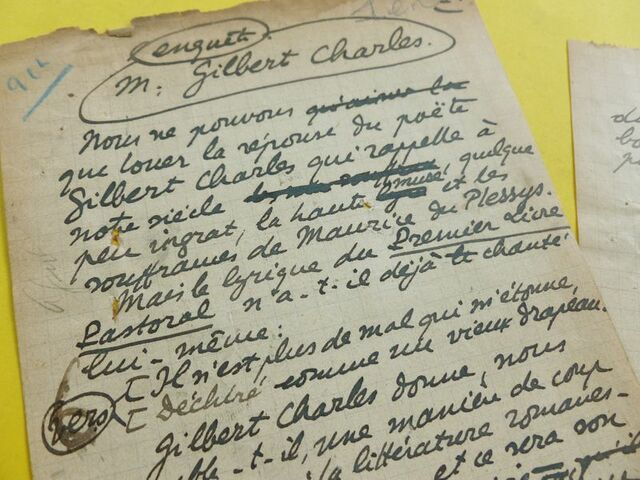 enquête
M. Gilbert Charles.
Nous ne pouvons
que louer la réponse du poëte
Gilbert Charles qui rappelle à
notre siècle, quelque
peu ingrat, la haute muse et les
souffrances de Maurice du Plessys.
Mais le lyrique du Premier Livre
Pastoral n'a-t-il déjà chanté
lui-même:
[Il n'est plus de mal qui m'étonne,
vers [Déchiré comme un vieux drapeau.
Gilbert Charles donne, nous
-t-il, une manière de coup
la littérature romanes-
et ce sera son